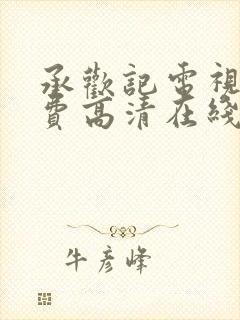 承歡記電視
費高清在綫
牛彦峰